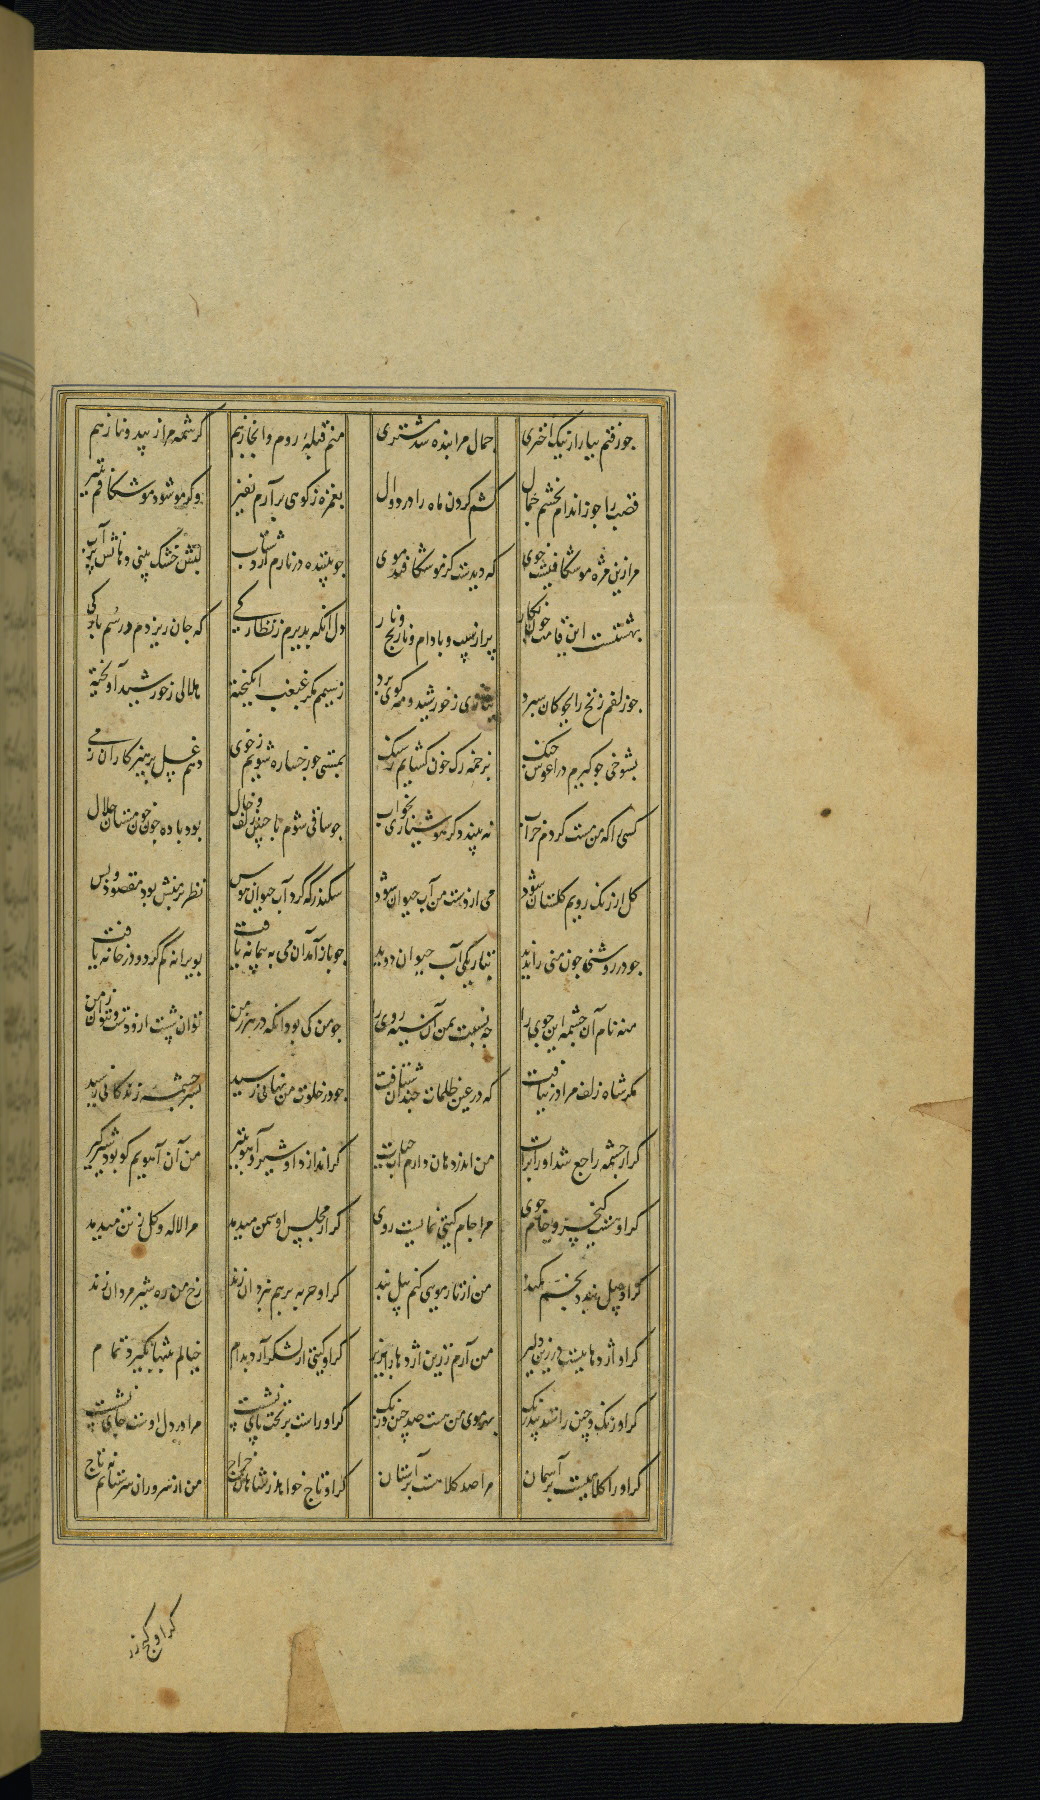 چو رفتم بیار از نیک اختری جمال مرا بنده شد مشتری منم قبلهٔ روم و ابخاز هم کرشمه مرا زیبد و ناز هم
قصب را چو ز اندام بخشم جمال کشم گردن ماه را در دوال بغمزه ز کوهی برآرم نفیر وگر مو شود مو شکافم بتیر
مرا زین مژه مو شکافیست خوی که دیدست کز مو شکافند موی چو بیننده در نارم آرد شتاب لبش خشک بینی دهانش پر آب
بهشتست این قامت چون نگار پر از سیب و بادام و نارنج و نار دل آنکه پذیرم ز نظارکی که جان ریزدم در سم بارکی
چو زلفم زنخ را بچوکان سپرد ز خورشید و مه کوی برد ز سیمم مکر غبغب انکیخته هلالی ز خورشید آویخته
بشوخی چو کیرم در آغوش چنک بزخمه رک خون کشایم ز سنک بمستی چو رخساره شویم ز خوی دهم غسل پرهیزکاران ز می
کسی را که من مست کردم خراب نه بیند دکر هوشیاری بخواب چو ساقی شوم با چنین زلف و خال بود باده چون خون مستان حلال
کل از رنک رویم کلستان شود می از دست من آب حیوان شود سکندر که کرد آب حیوان هوس نظر بر منش بود مقصود و بس
چو در روشنی چون منی را ندید بتاریکی آب حیوان دوید چو باز آمد آن می به پیمانه یافت بویرانه کم کرد و در خانه یافت
منه نام آن چشمه این جوی را چه نسبت بمن آن سیه روی را چو من کی بود آنکه در هر زمن توان شست ازو دست و نتوان ز من
مکر شاه زلف مرا در نیافت که در عین ظلمات چندان شتافت چو در خلوت من نهانی رسید بسرچشمه زندکانی رسید
کر از چشمه راجع شد او را برات من اندر دهان دارم آب حیات کر اندازد او شیر آهو بتیر من آن آهویم کو بود شیرکیر
کر او هست کیخسرو جام جوی مرا جام کیتی نمایست روی کر از مجلس او سمن میدمد مرا لاله و کل ز تن میدمد
کر او پیل بندد بخم کمند من از تار مویی کنم پیل بند کر او حربه بر هم نبردان زند رخ من ره شیر مردان زند
کر او اژدهاییست درزین دلیر من آرم ز زین اژدها را بزیر کر او کیتی از لشکر آرد بدام خیالم بتنها بکیرد تمام
کر او زنک و چین را ستد بیدرنک بهر موی من هست صد چین و زنک کر او راست بر تخت پای نشست مرا در دل اوست جای نشست
کر او را کلاهیست بر آسمان مرا صد کلاهست بر آستان کر او تاج خواهد ز شاهان خراج من از سروران سر ستانم نه تاج
کر او کنج زر